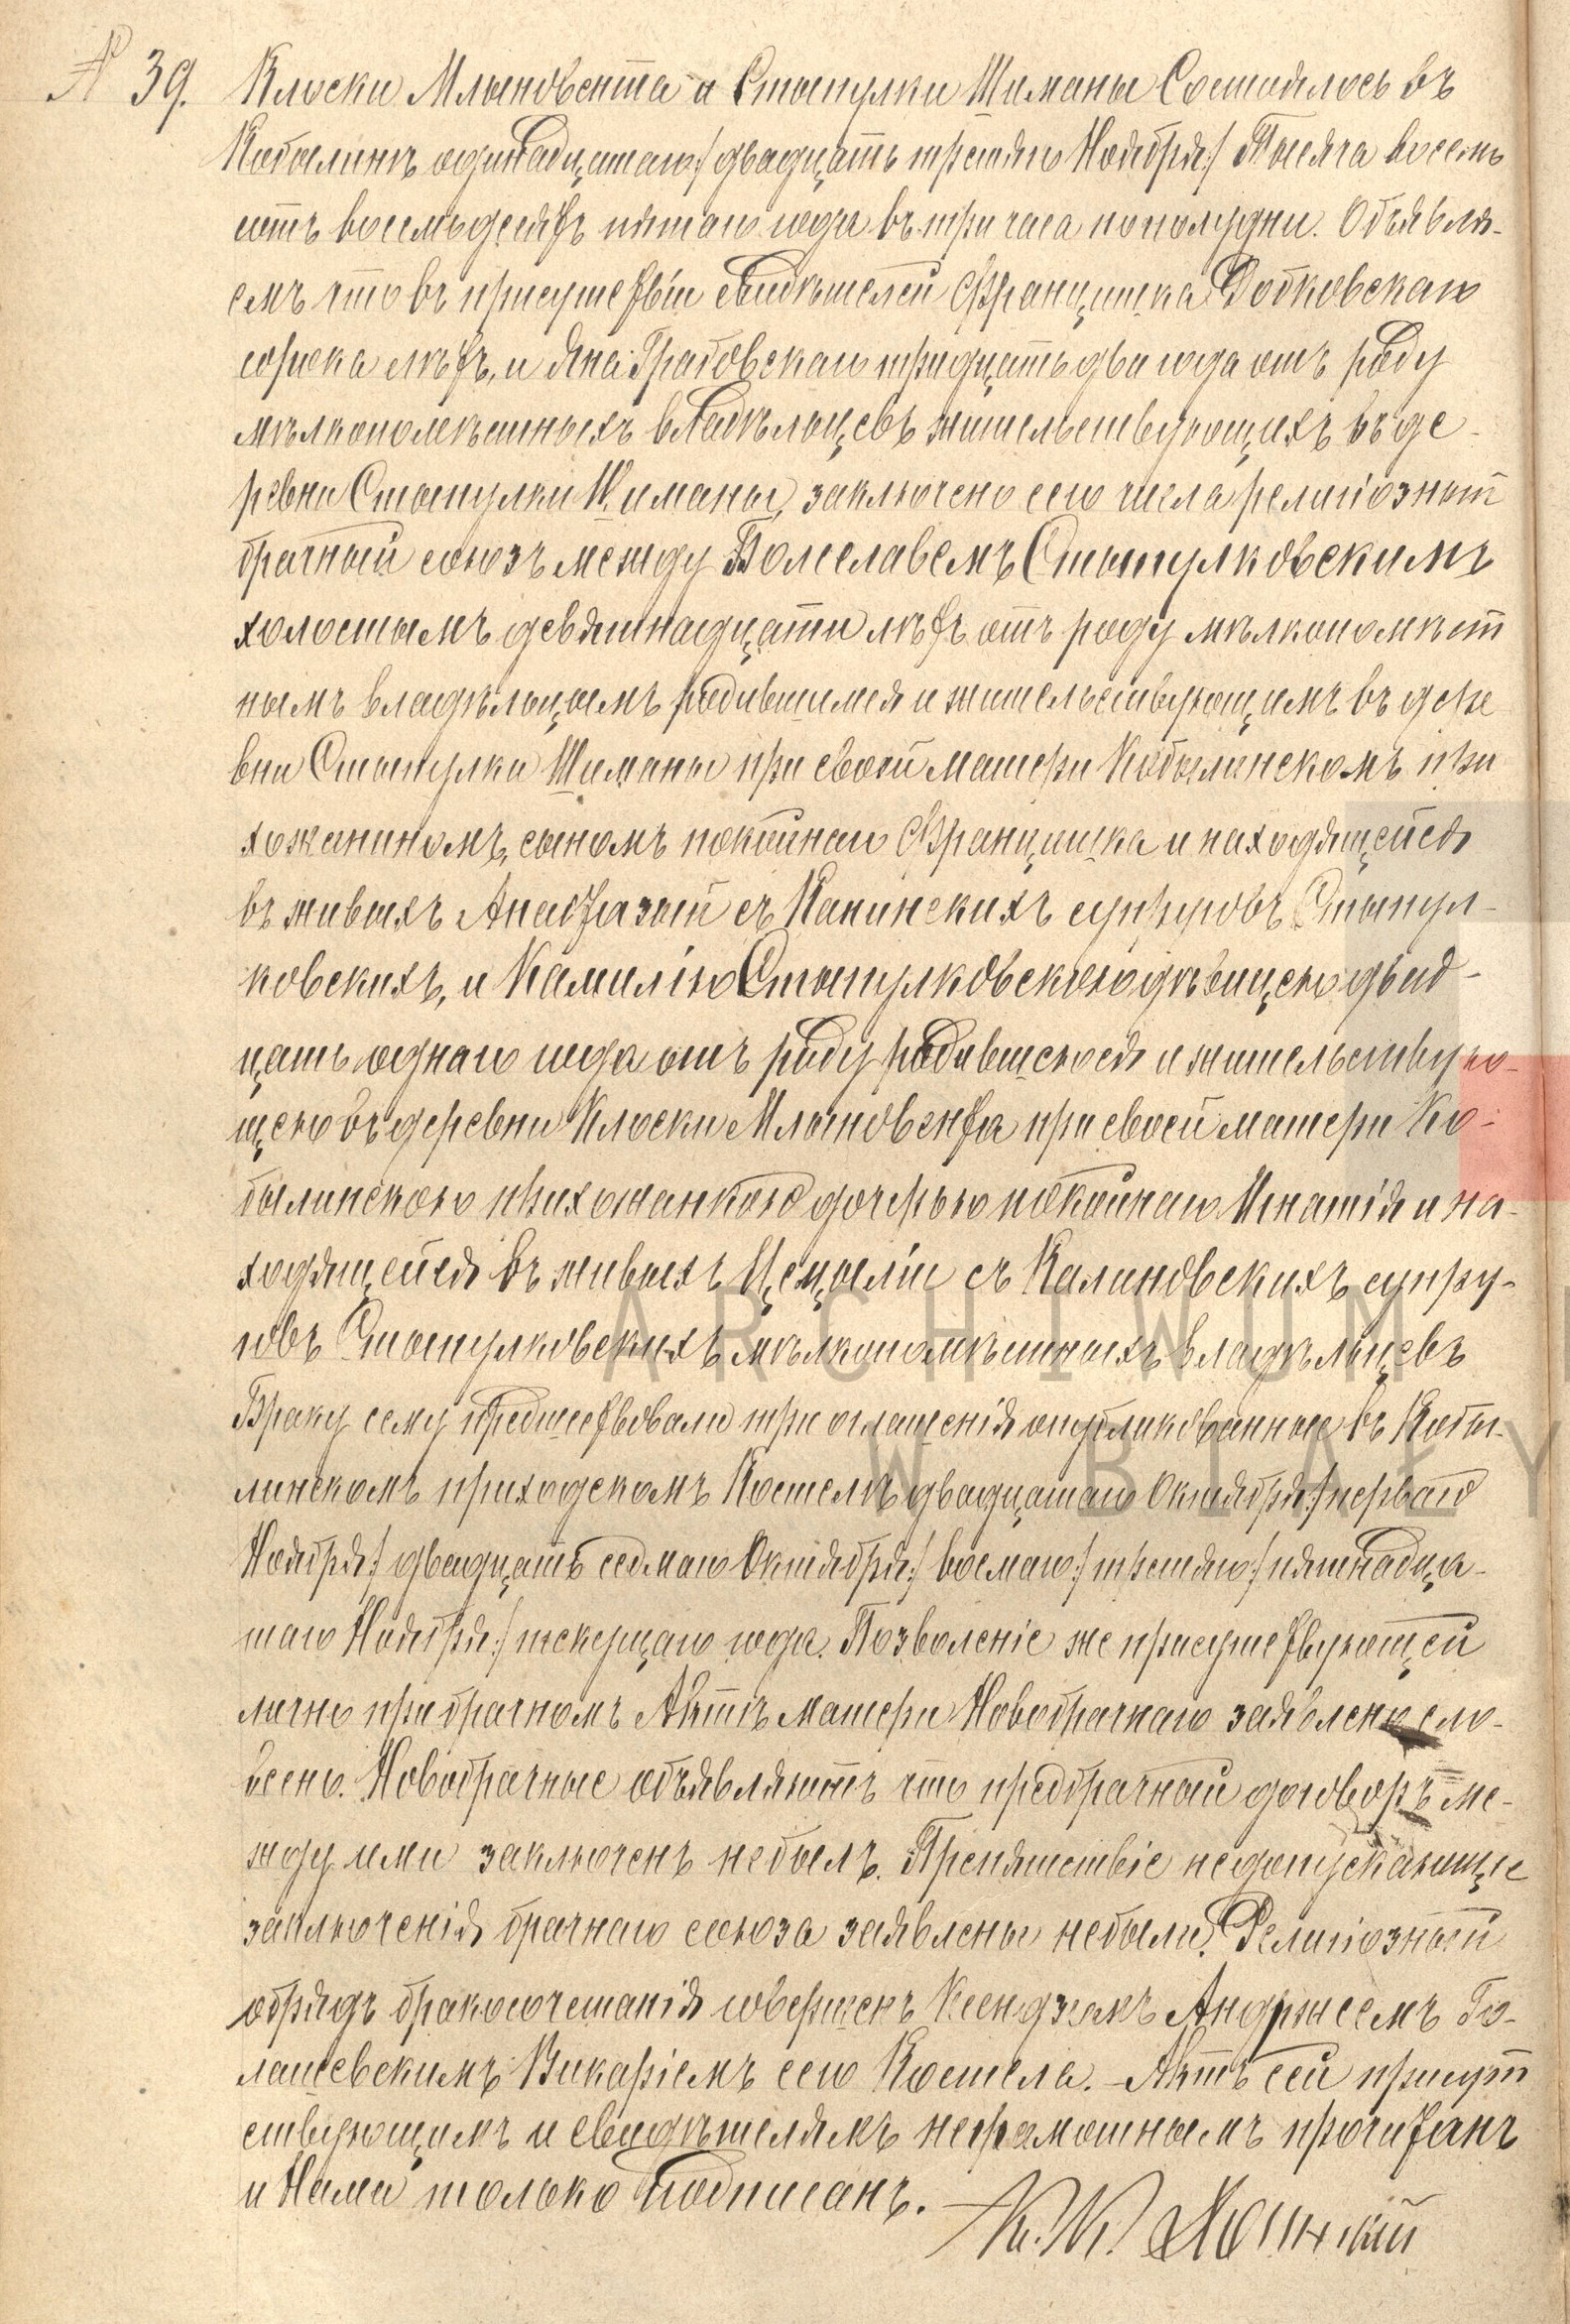 № 39. Клоски Млыновента и Стыпулки Шиманы Состоялось въ
Кобылинѣ одинадцатаго :/ двадцать третяго Ноября :/ Тысяча восемь
сотъ восемьдесятъ пятаго года въ три часа пополудни. Объявля-
емъ что въ присутствіи свидѣтелей Францишка Вотковскаго
сорока лѣтъ, и Яна Грабовскаго тридцать два года отъ роду
мѣлкопомѣстныхъ владѣльцевъ жительствующихъ въ де-
ревни Стыпулки Шиманы, заключено сего числа религіозный
брачный союзъ между Болеславемъ Стыпулковскимъ
холостымъ девятнадцати лѣтъ отъ роду мѣлкопомѣст
нымъ владѣльцымъ родившимся и жительствующимъ въ дере
вни Стыпулки Шиманы при своей матери Кобылинскомъ при
хожаниномъ, сыномъ покойнаго Францишка и находящейся
въ живыхъ Анастазый съ Капинскихъ супруговъ Стыпул-
ковскихъ, и Камилію Стыпулковскою дѣвицею двад-
цать однаго года отъ роду родившеюся и жительствую-
щею въ деревни Клоски Млыновента при своей матери Ко-
былинскою прихожанкою дочерью покойнаго Игнатія и на-
ходящейся въ живыхъ Цецыліи съ Калиновскихъ супру-
говъ Стыпулковскихъ мѣлкопомѣстныхъ владѣльцевъ
Браку сему предшествовали три оглашенія опубликованные въ Кобы-
линскомъ приходскомъ Костелѣ двадцатаго Октября :/ перваго
Ноября :/ двадцать седмаго Октября :/ восмаго :/ третяго :/ пятнадца-
таго Ноября :/ текерщаго года. Позволеніе же присутствующей
лично при брачномъ Актѣ матери Новобрачнаго заявлено сло-
весно. Новобрачные объявляютъ что предбрачный договоръ ме-
жду ими заключенъ небылъ. Препятствіе недопускающіе
заключенія брачнаго союза заявлены небыли. Религіозный
обрядъ бракосочетанія совершенъ Ксендземъ Андржеемъ Го-
лашевскимъ Викаріемъ сего Костела. Актъ сей присут
ствующимъ и свидѣтелямъ неграмотнымъ прочитанъ
и Нами только подписанъ.
ARCHIWUM
W BIAŁY